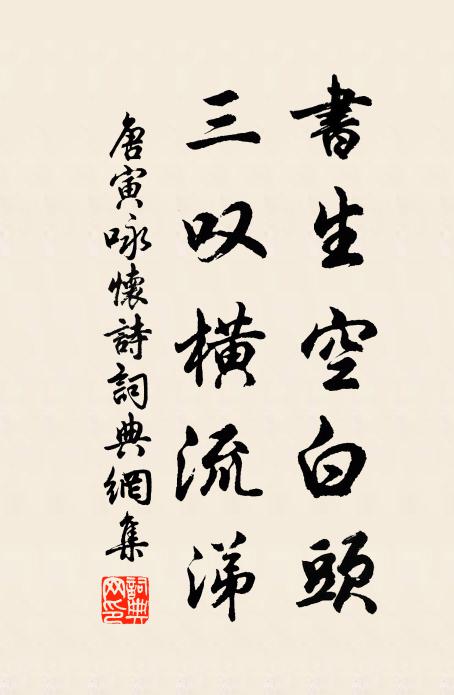 書生空白頭
三叹橫流涕
唐寅咏懷詩詞典網集
詞典網印